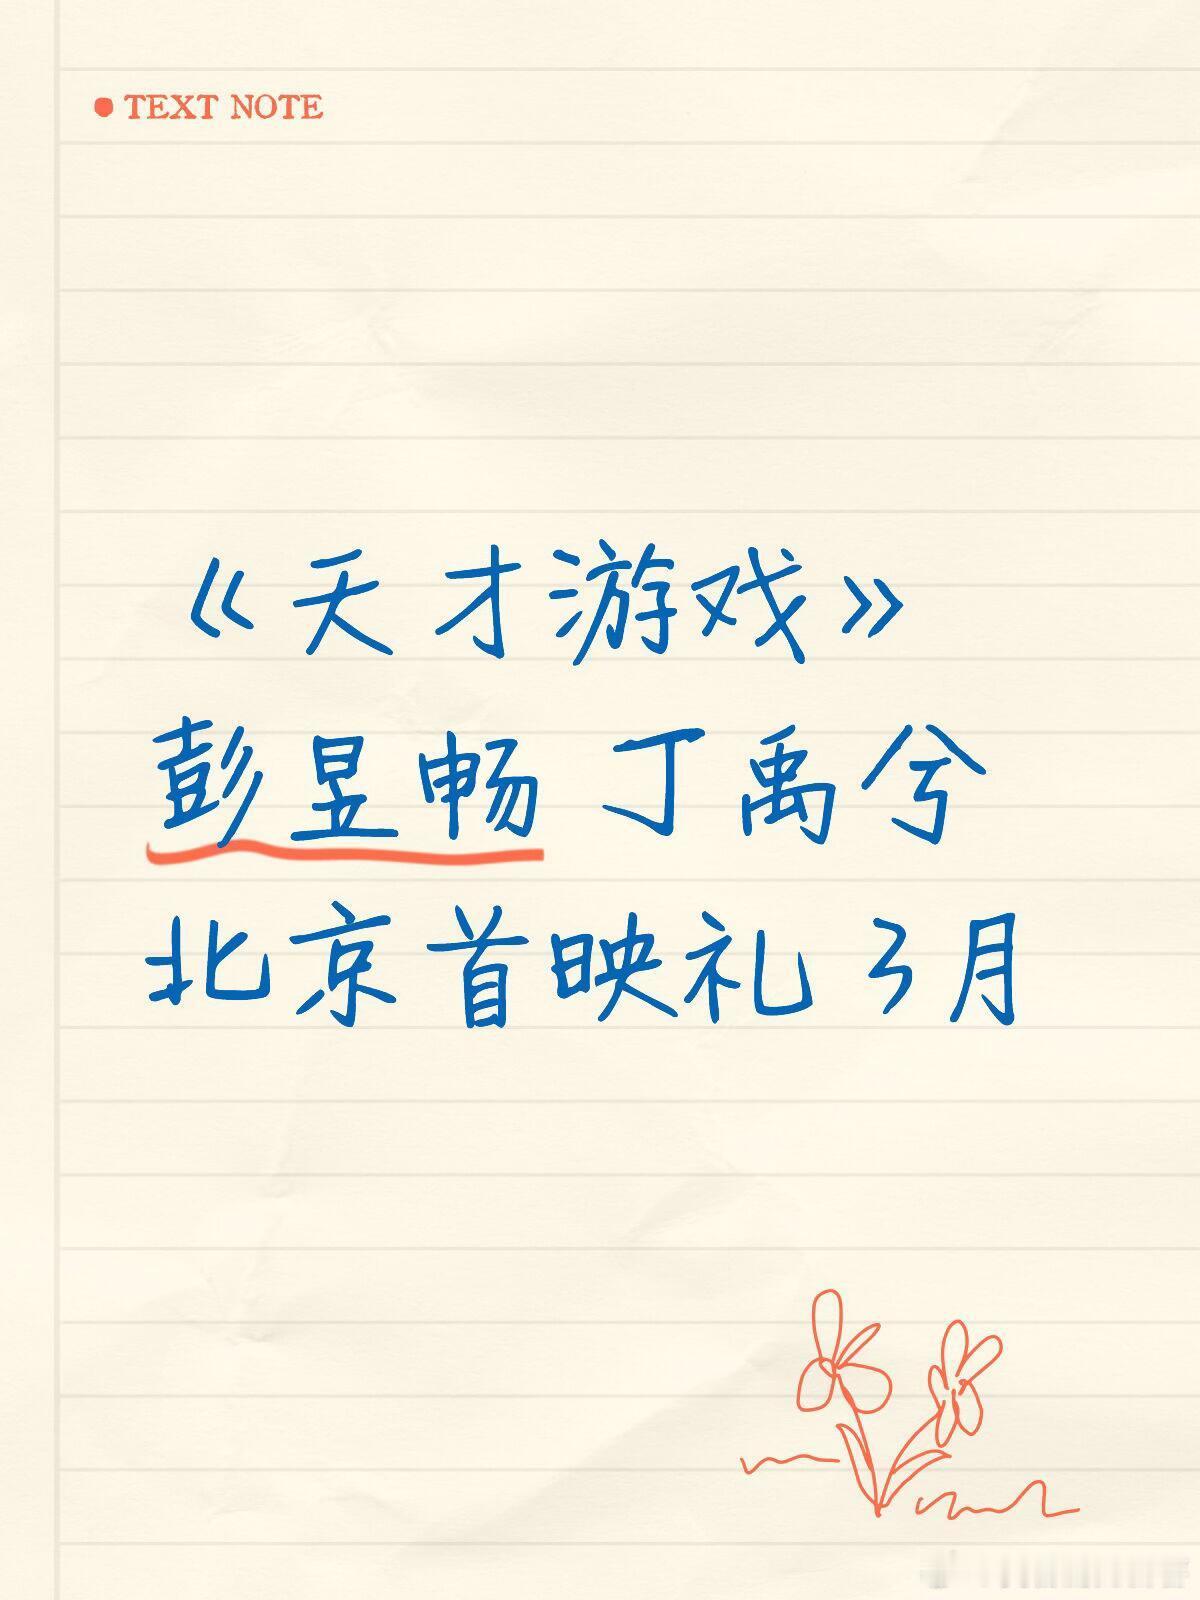 TEXT NOTE
《天才游戏》
彭昱畅 丁禹兮
北京首映礼 3月